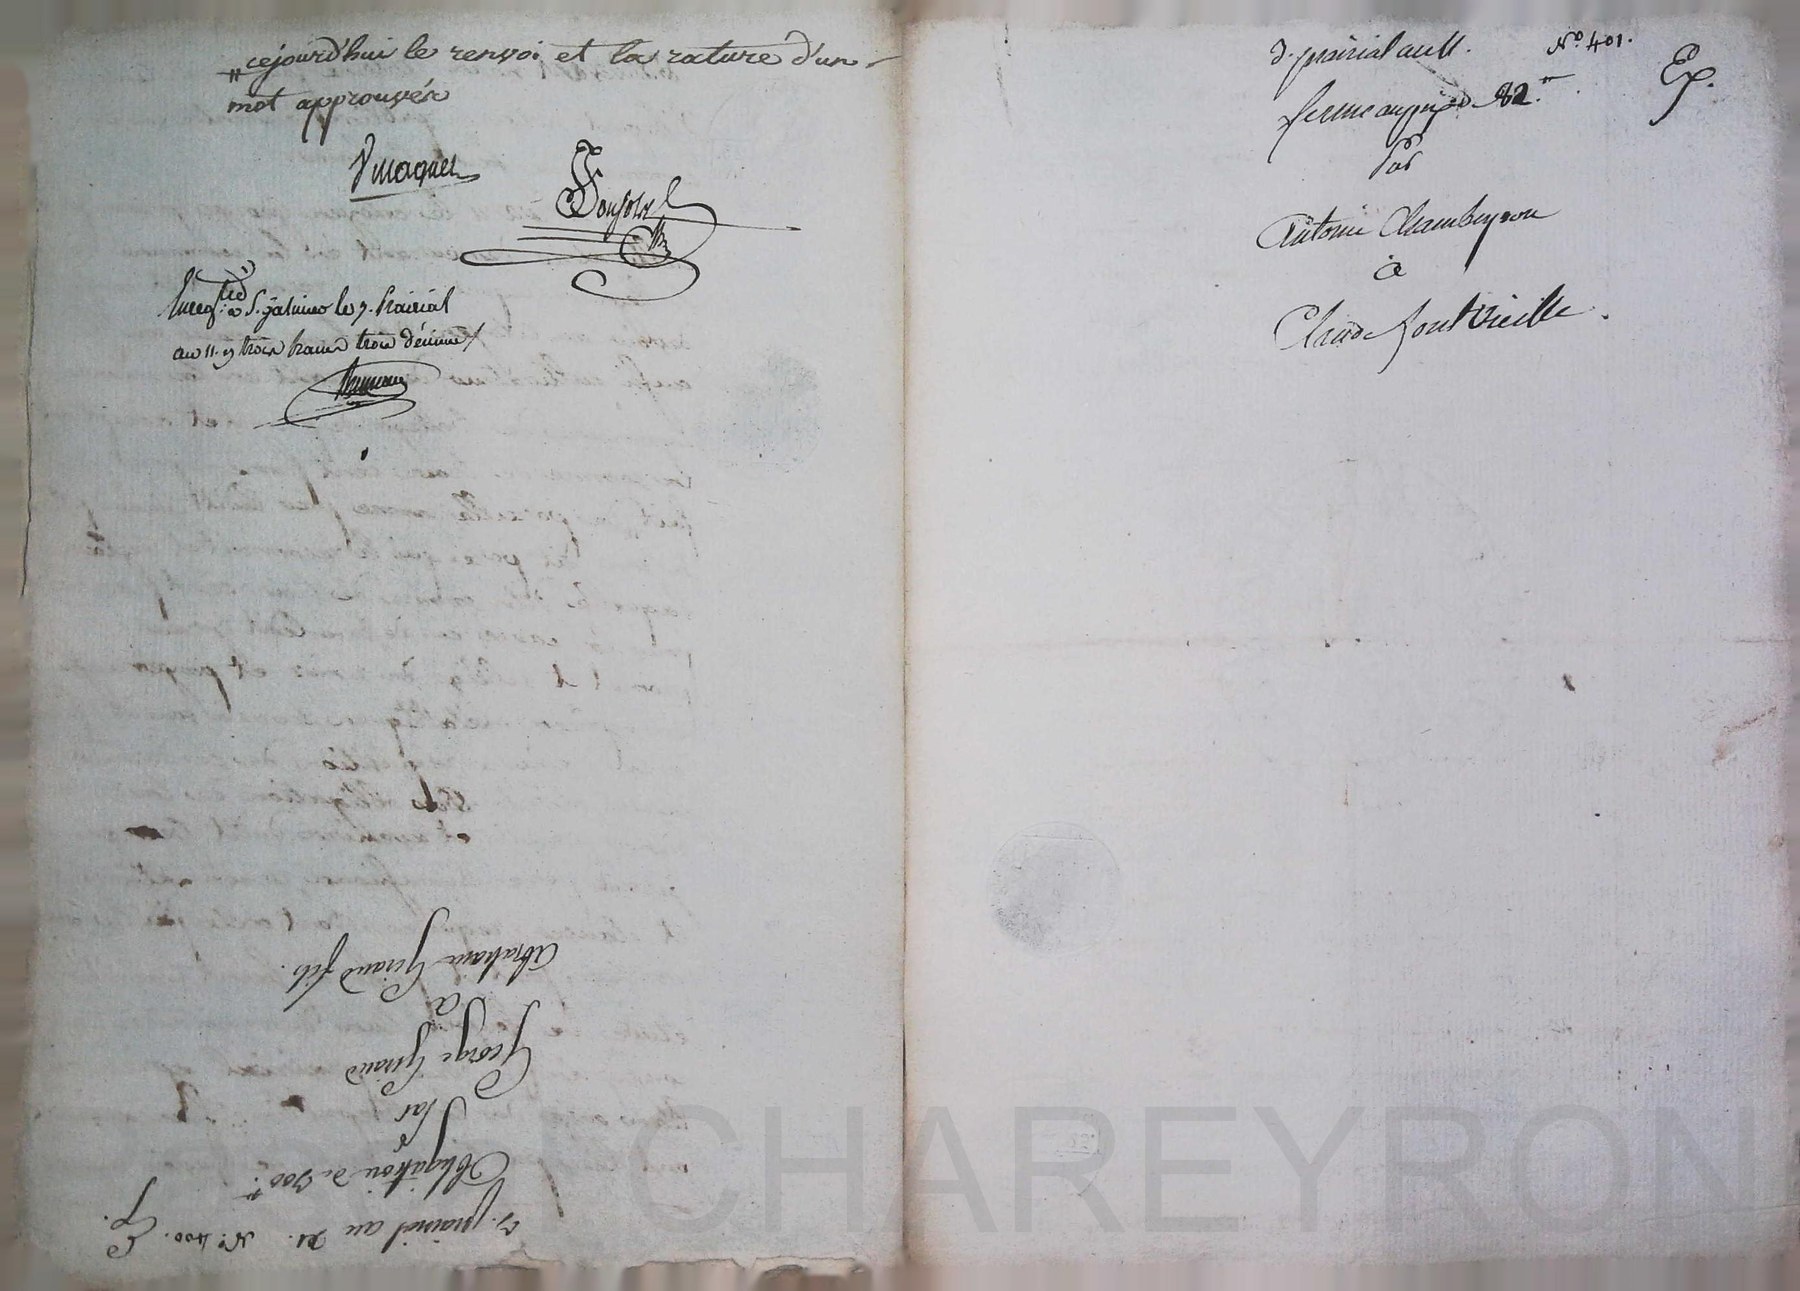 cejourd'hui le renvoi et la rature d'un
mot approuvés
Enreg.té à S. galmier le 7. Prairial
an 11. reçu trois francs trois décimes
Abraham Giraud fils.
à
George Giraud
Par
Obligation de 300.#
3. prairial an 11. N.° 400. Ex.
3. prairial an 11. N.° 401.
ferme au prix de 82.# Ex.
Par
Antoine Chambeyron
à
Claude fontvieille.
CHAREYRON